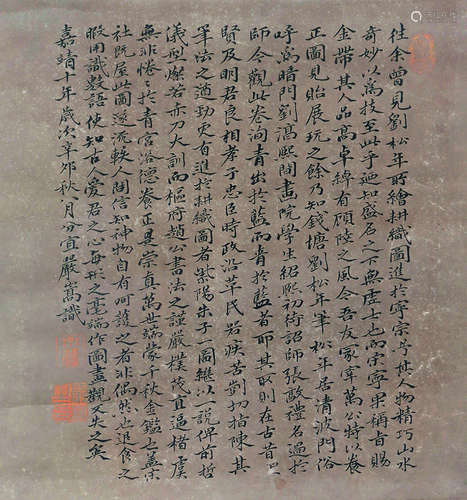 往余曾見劉松年所繪耕織圖進於寧宗其人物精巧山水
奇妙以為技至此乎迺知盛名之下無虛士也而宋寧果稱旨賜
金帶其人品高卓綽有顧陸之風今吾友冢宰萬公特以養
正圖見貽展玩之餘乃知錢塘劉松年筆松年居清波門俗
呼為暗門劉淳熙間畫院學生紹熙初待詔師張敦禮名過於
師今觀此卷洵青出於藍而青於藍者耶其取則在古昔聖
賢及明君良相孝子忠臣時政沿革民疾苦剴切指陳其
筆法之遒勁更有進於耕織圖者紫陽朱子一圖繼以一說俾前哲
儀型燦若赤刀大訓而樞府趙公書法之謹嚴樸茂直逼褚虞
無非惓惓於青宮洽德養正是崇真萬世瑞蒙千秋金鑑也蓋宗
社既屋此圖遂流軼人間信知神物自有呵護之者非偶然也退食之
暇用識數語使知古人愛君之心每形之毫端作圖畫觀又失之矣
嘉靖十年歲次辛卯秋月分宜嚴嵩識